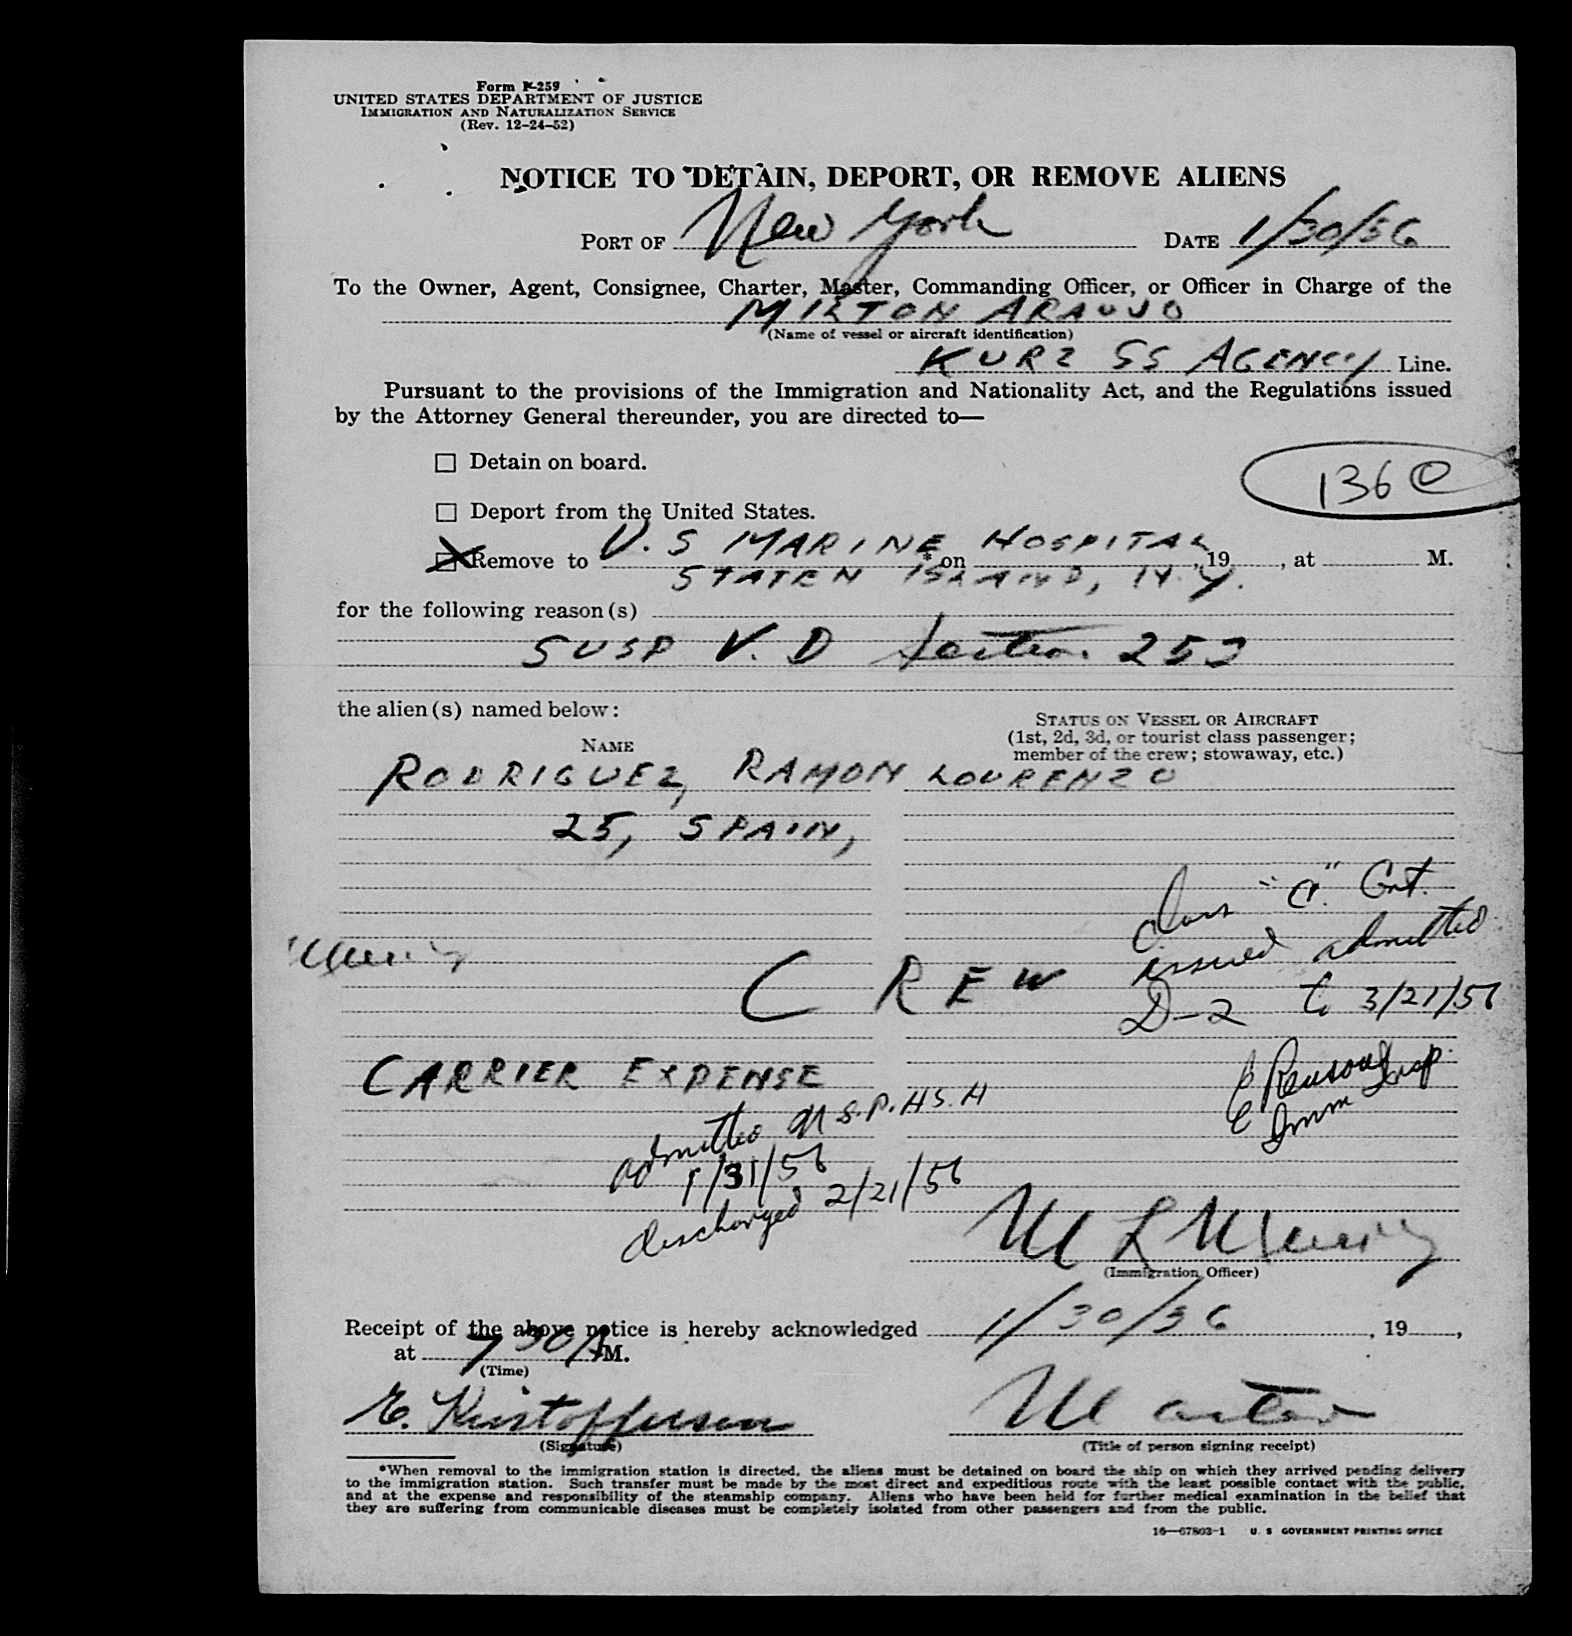 Form I-259
UNITED STATES DEPARTMENT OF JUSTICE
IMMIGRATION AND NATURALIZATION SERVICE
(Rev. 12-24-52)
NOTICE TO DETAIN, DEPORT, OR REMOVE ALIENS
PORT OF New York DATE 1/30/56
To the Owner, Agent, Consignee, Charter, Master, Commanding Officer, or Officer in Charge of the
MILTON ARAUJO
(Name of vessel or aircraft identification)
KURZ SS AGENCY Line.
Pursuant to the provisions of the Immigration and Nationality Act, and the Regulations issued
by the Attorney General thereunder, you are directed to—
☐ Detain on board.
136 @
☐ Deport from the United States.
☒ Remove to U.S MARINE HOSPITAL *on , 19 , at M.
STATEN ISLAND, N.Y.
for the following reason(s)
SUSP V.D Section 253
the alien(s) named below:
NAME
STATUS ON VESSEL OR AIRCRAFT
(1st, 2d, 3d, or tourist class passenger;
member of the crew; stowaway, etc.)
RODRIGUEZ, RAMON LOURENZO
25, SPAIN,
Class "A" Cert.
issued admitted
D-2 to 3/21/56
CREW
CARRIER EXPENSE
Imm Insp
admitted U.S.P.H.S.H
1/31/56
discharged 2/21/56
M L
(Immigration Officer)
Receipt of the above notice is hereby acknowledged 1/30/56 , 19 ,
at 7 30 A M.
(Time)
E. Kristofferson Master
(Signature) (Title of person signing receipt)
*When removal to the immigration station is directed, the aliens must be detained on board the ship on which they arrived pending delivery
to the immigration station. Such transfer must be made by the most direct and expeditious route with the least possible contact with the public,
and at the expense and responsibility of the steamship company. Aliens who have been held for further medical examination in the belief that
they are suffering from communicable diseases must be completely isolated from other passengers and from the public.
16—67803-1 U. S GOVERNMENT PRINTING OFFICE